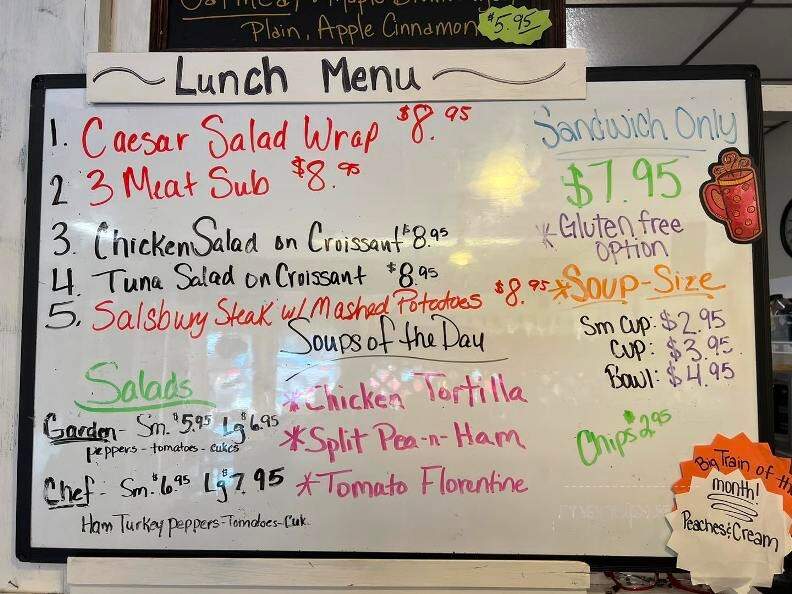 Plain, Apple Cinnamon $5.95
Lunch Menu
1. Caesar Salad Wrap $8.95
2 3 Meat Sub $8.95
3. Chicken Salad on Croissant $8.95
4. Tuna Salad on Croissant $8.95
5. Salsbury Steak w/ Mashed Potatoes $8.95
Sandwich Only
$7.95
*Gluten free
option
*Soup-Size
Sm Cup: $2.95
Cup: $3.95
Bowl: $4.95
Chips 2.95
Soups of the Day
*Chicken Tortilla
*Split Pea-n-Ham
*Tomato Florentine
Salads
Garden- Sm. $5.95 Lg $6.95
peppers-tomatoes-cukes
Chef- Sm. $6.95 Lg $7.95
Ham Turkey Peppers-Tomatoes-Cuk.
Big Train of the
month!
Peaches & Cream